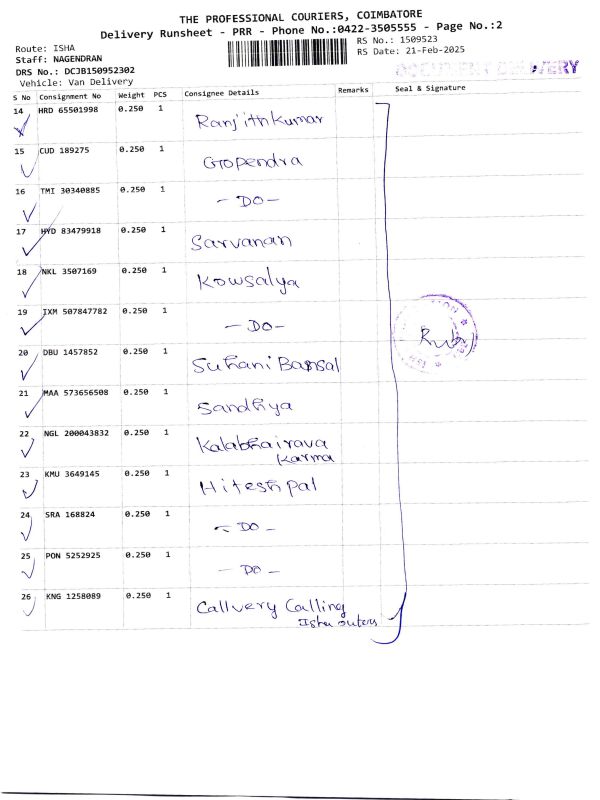 THE PROFESSIONAL COURIERS, COIMBATORE
Delivery Runsheet - PRR - Phone No.:0422-3505555 - Page No.:2
Route: ISHA
Staff: NAGENDRAN
DRS No.: DCJB150952302
Vehicle: Van Delivery
RS No.: 1509523
RS Date: 21-Feb-2025
DOCUMENT DELIVERY
S No Consignment No Weight PCS Consignee Details Remarks Seal & Signature
14 HRD 65501998 0.250 1 Ranjithkumar
15 CUD 189275 0.250 1 Gopendra
16 TMI 30340885 0.250 1 - DO -
17 HYD 83479918 0.250 1 Sarvanan
18 NKL 3507169 0.250 1 Kowsalya
19 IXM 507847782 0.250 1 - DO -
20 DBU 1457852 0.250 1 Suhani Bansal
21 MAA 573656508 0.250 1 Sandhya
22 NGL 200043832 0.250 1 Kalabhairava
Karma
23 KMU 3649145 0.250 1 Hitesh pal
24 SRA 168824 0.250 1 - DO -
25 PON 5252925 0.250 1 - DO -
26 KNG 1258089 0.250 1 Callvery Calling